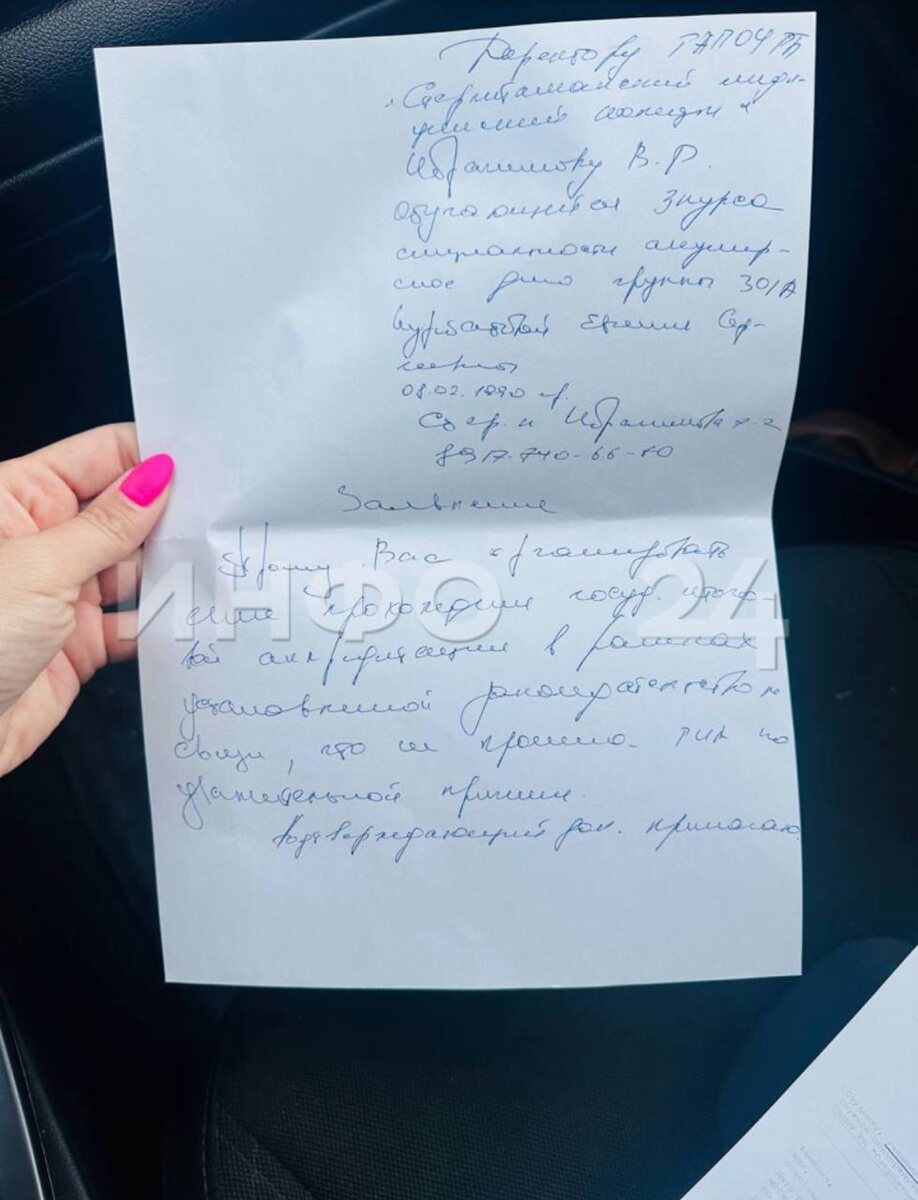 Директору ГАПОУ РБ
"Стерлитамакский меди-
цинский колледж"
Ибрагимову В.Р.
обучающейся 3 курса
специальности акушер-
ское дело группы 301А
Евгении Сер-
геевны
08.02.1990 г.
8917-740-66-60
Заявление
Прошу Вас организовать
мне прохождение госуд. итого-
вой в рамках
установленной законодательством
связи, что не прошла ГИА по
уважительной причине.
Подтверждающий док. прилагаю.
ИНФО 24